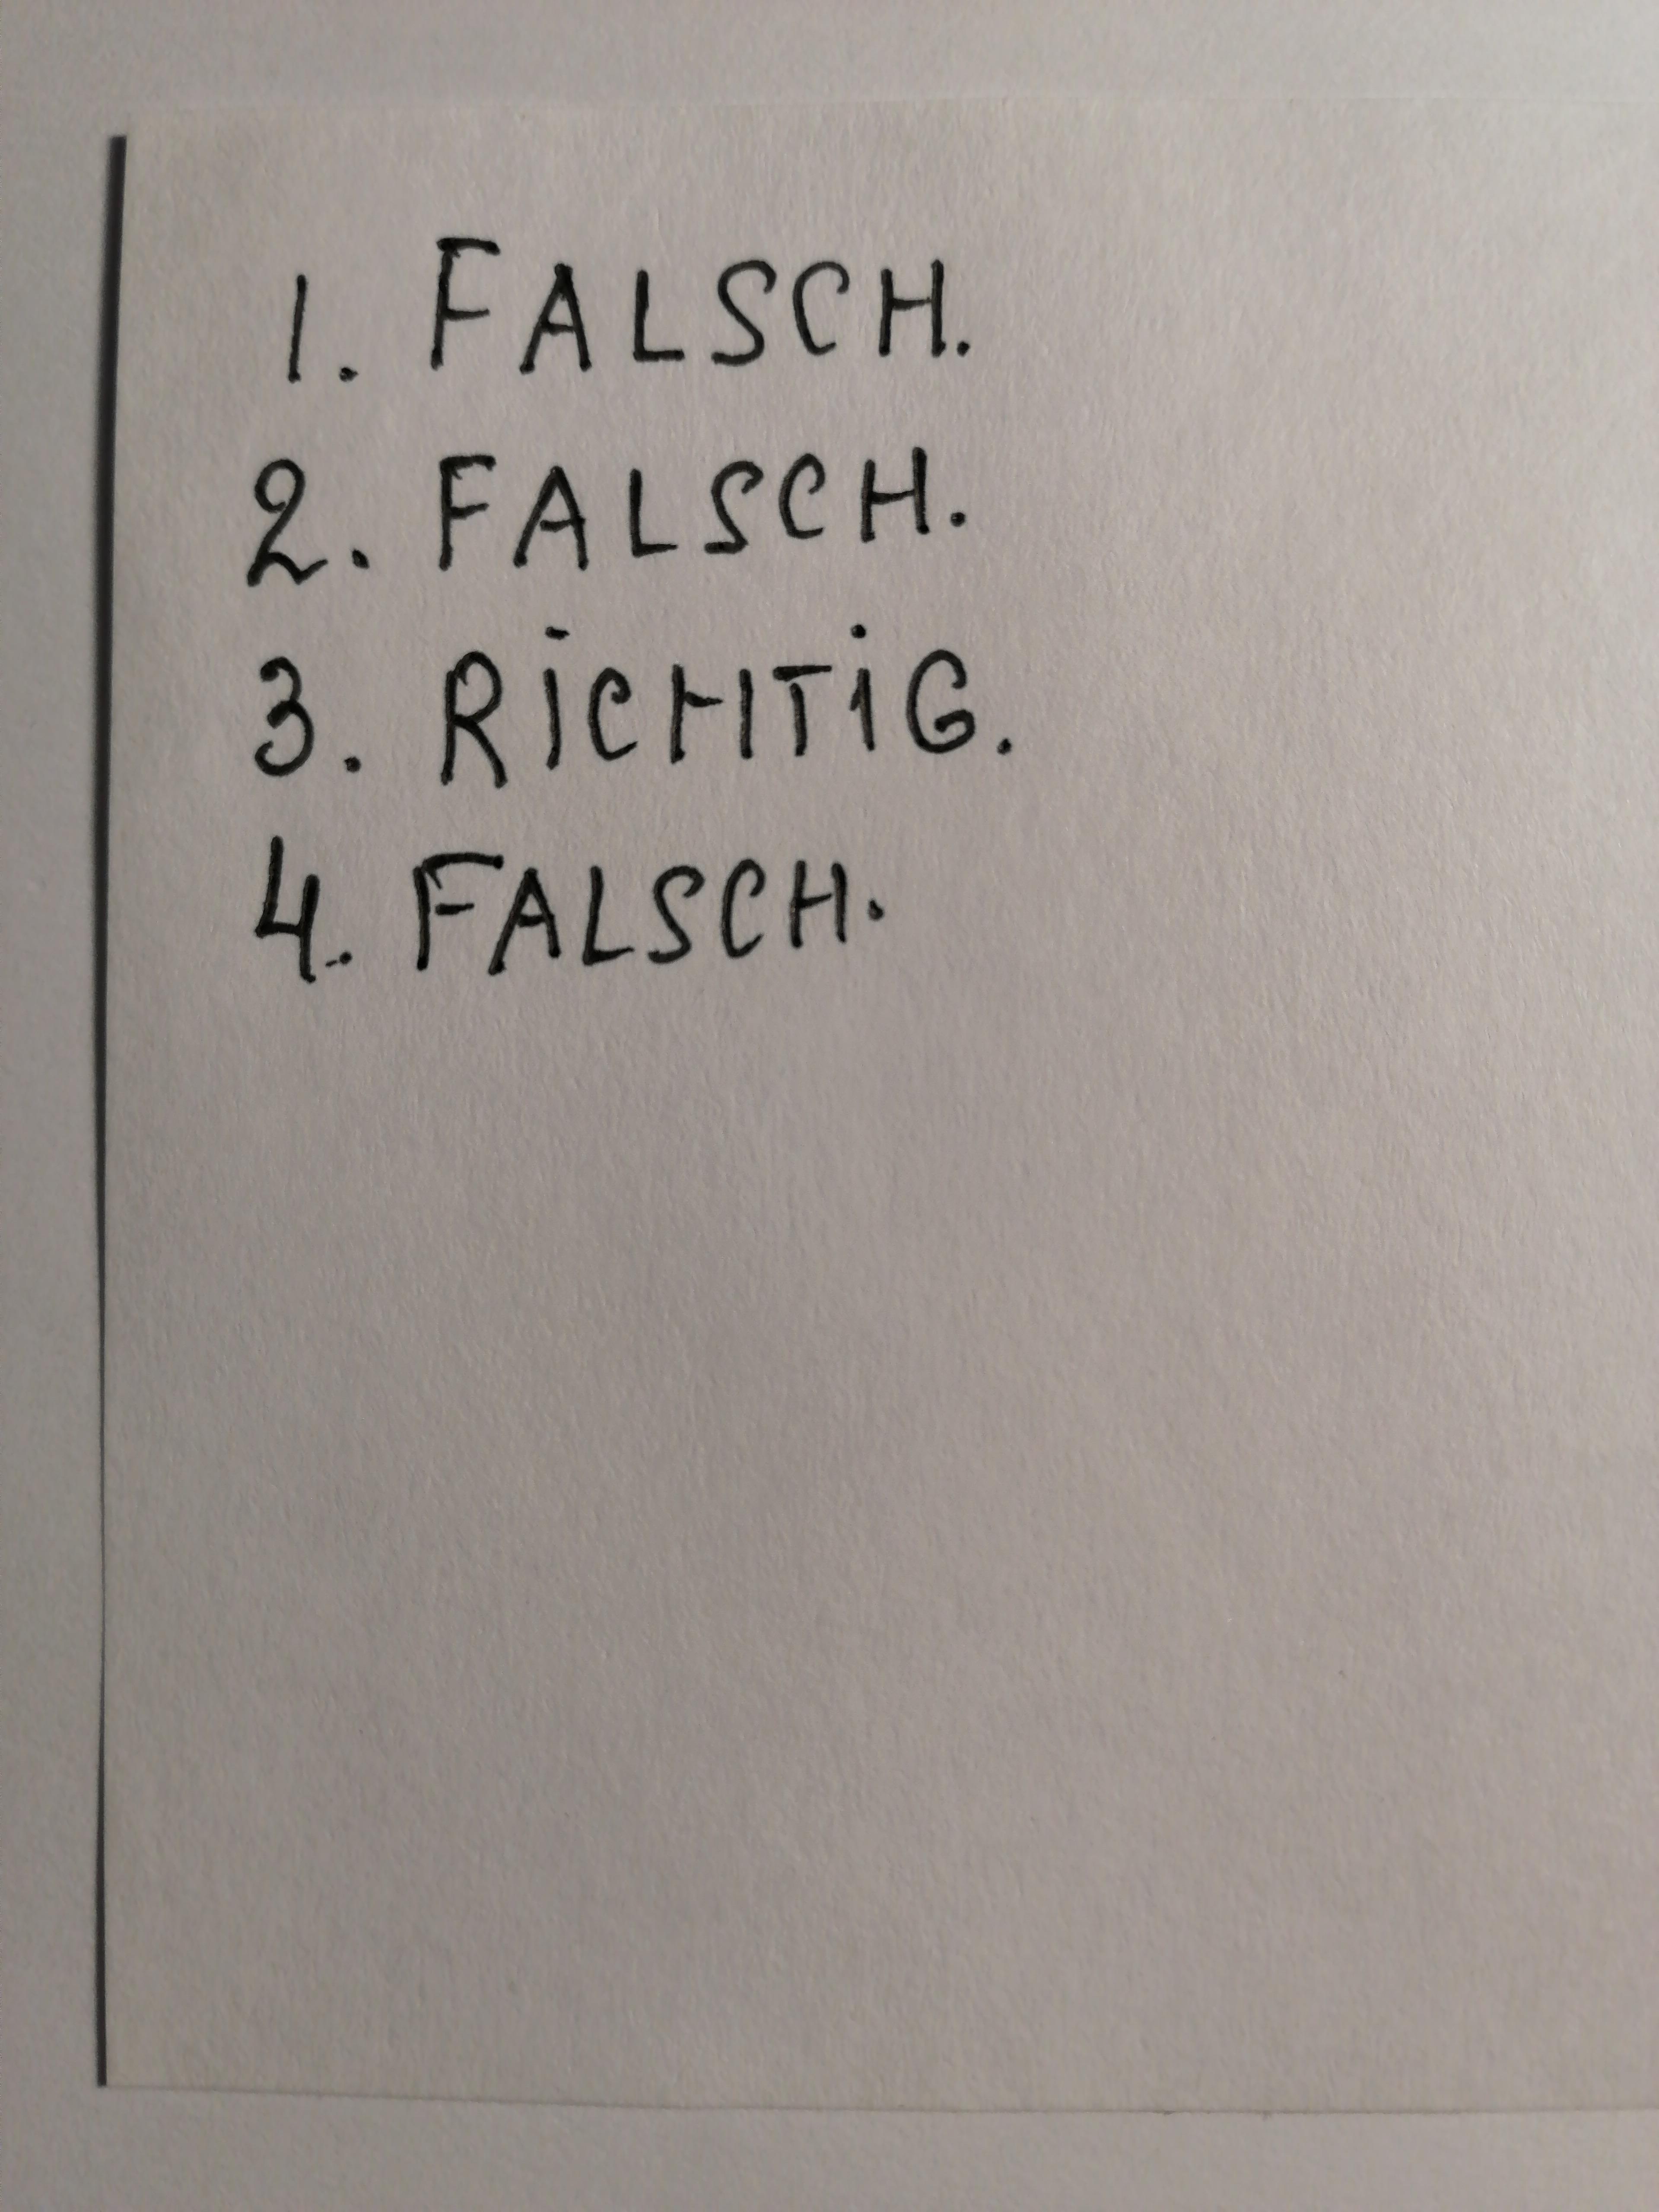 1. FALSCH.
2. FALSCH.
3. RiCHTiG.
4. FALSCH.